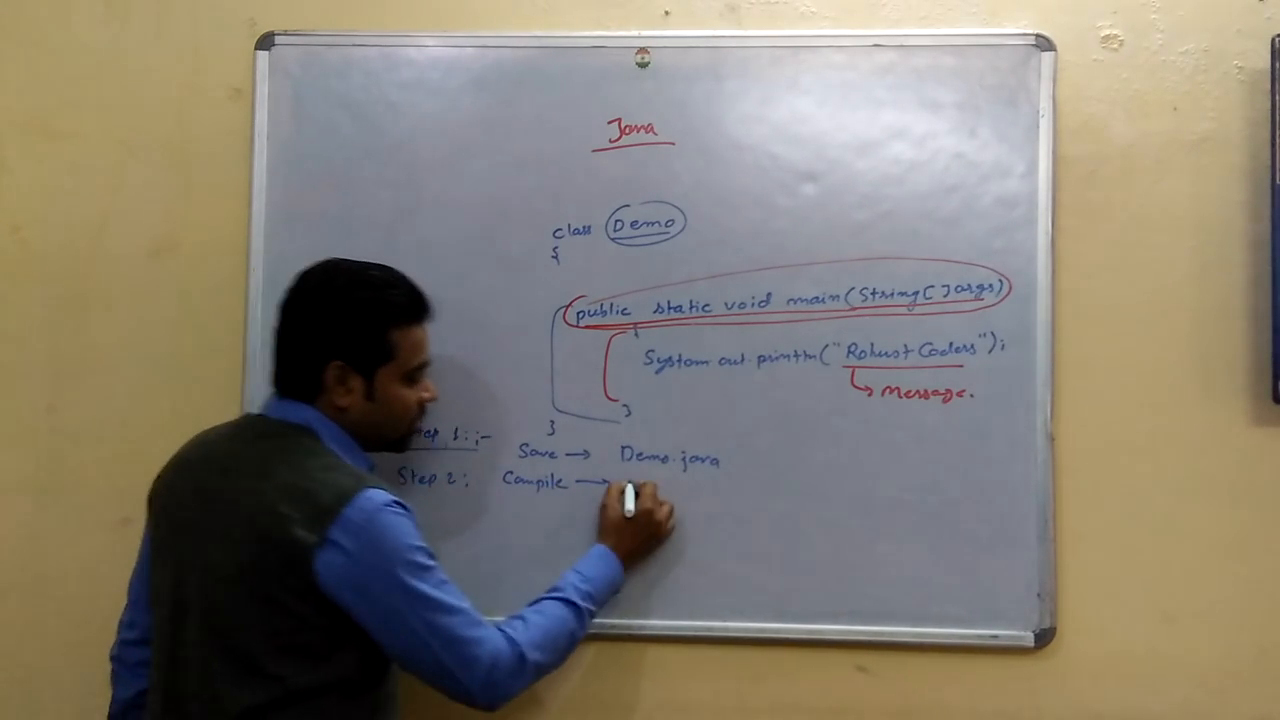 Java
class Demo
{
public static void main(String[]args)
{
System.out.println("Robust Coders");
Message.
}
}
Step 1:-
Save → Demo.java
Step 2: Compile →